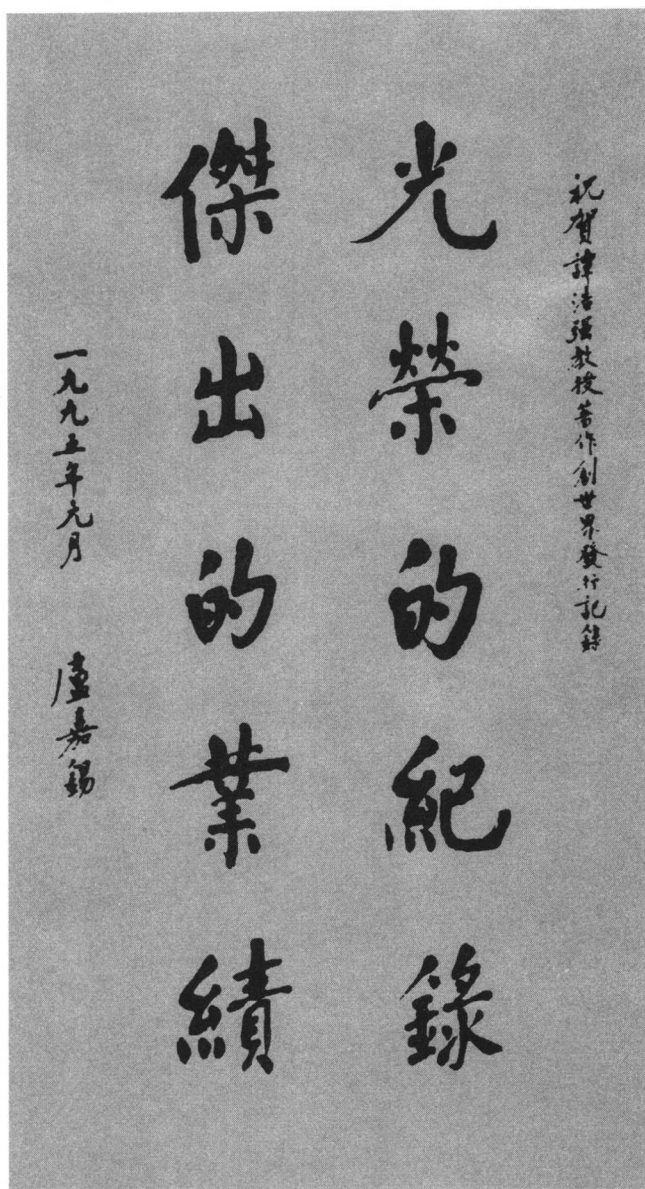 祝賀譚浩强教授著作創世界發行記錄
光榮的紀錄
傑出的業績
一九九五年元月
盧嘉錫